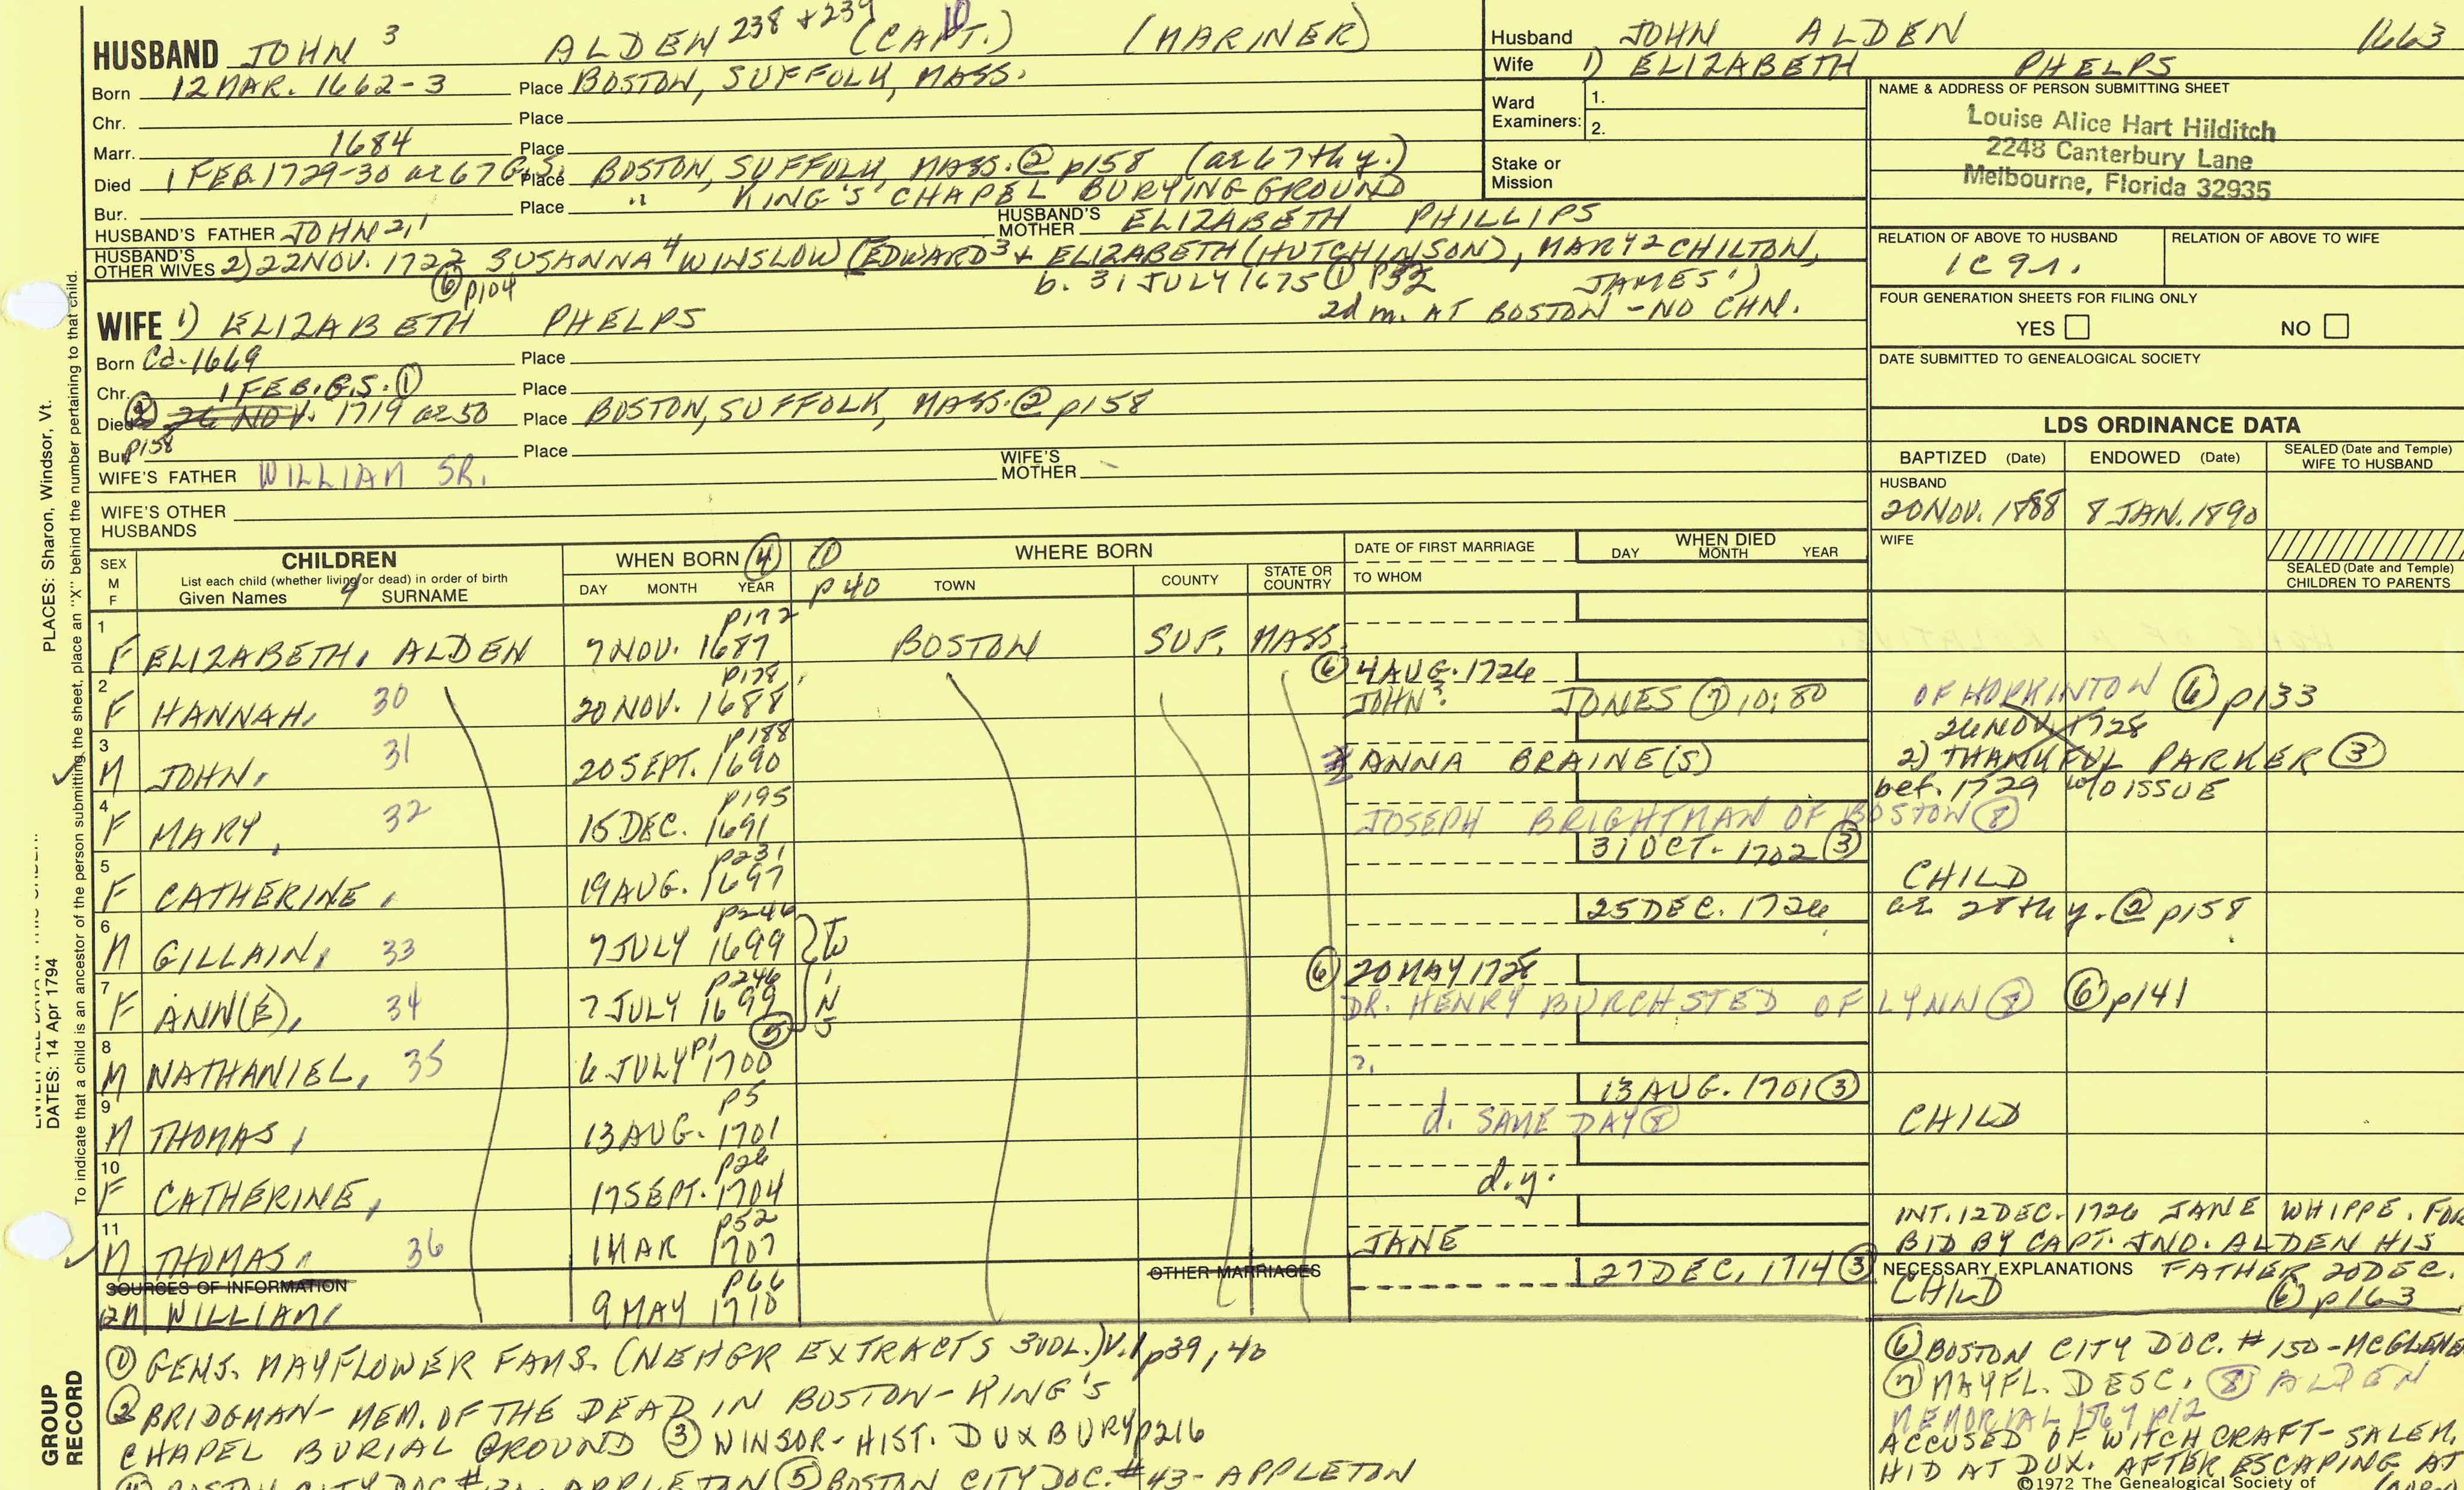 HUSBAND JOHN 3 ALDEN 238 + 239 (CAPT.) 10 (MARINER)
Born 12 MAR. 1662-3 Place BOSTON, SUFFOLK, MASS.
Chr. Place
Marr. 1684 Place
Died 1 FEB. 1729-30 ae 67 G.S. Place BOSTON, SUFFOLK, MASS. ② p158 (ae 67th y.)
Bur. Place " KING'S CHAPEL BURYING GROUND
HUSBAND'S FATHER JOHN 2,1 HUSBAND'S MOTHER ELIZABETH PHILLIPS
HUSBAND'S OTHER WIVES 2) 22 NOV. 1722 SUSANNA 4 WINSLOW (EDWARD 3 + ELIZABETH (HUTCHINSON), MARY 2 CHILTON,
⑥ p104 b. 31 JULY 1675 ① p32 JAMES 1)
2d m. AT BOSTON - NO CHN.
WIFE 1) ELIZABETH PHELPS
Born Ca. 1669 Place
Chr. 1 FEB. G.S. ① Place
Died ② 26 NOV. 1719 ae 50 Place BOSTON, SUFFOLK, MASS. ② p158
p158
Bur. Place
WIFE'S FATHER WILLIAM SR. WIFE'S MOTHER -
WIFE'S OTHER HUSBANDS
Husband JOHN ALDEN 1663
Wife 1) ELIZABETH PHELPS
Ward Examiners: 1.
2.
Stake or Mission
NAME & ADDRESS OF PERSON SUBMITTING SHEET
Louise Alice Hart Hilditch
2248 Canterbury Lane
Melbourne, Florida 32935
RELATION OF ABOVE TO HUSBAND RELATION OF ABOVE TO WIFE
1C 9r.
FOUR GENERATION SHEETS FOR FILING ONLY
YES NO
DATE SUBMITTED TO GENEALOGICAL SOCIETY
LDS ORDINANCE DATA
BAPTIZED (Date) ENDOWED (Date) SEALED (Date and Temple) WIFE TO HUSBAND
HUSBAND
20 NOV. 1888 8 JAN. 1890
WIFE
SEALED (Date and Temple) CHILDREN TO PARENTS
SEX M F CHILDREN WHEN BORN ④ ① WHERE BORN DATE OF FIRST MARRIAGE WHEN DIED
List each child (whether living or dead) in order of birth
Given Names 4 SURNAME DAY MONTH YEAR p40 TOWN COUNTY STATE OR COUNTRY TO WHOM DAY MONTH YEAR
1 F ELIZABETH, ALDEN p172 7 NOV. 1687 BOSTON SUF. MASS.
2 F HANNAH, 30 p178 20 NOV. 1688 ⑥ 4 AUG. 1726 JOHN 3 JONES ⑦ 10:80 OF HOPKINTON ⑥ p133
3 M JOHN, 31 p188 20 SEPT. 1690 ANNA BRAINE(S) 26 NOV. 1728 2) THANKFUL PARKER ③
bef. 1729 w/o ISSUE
4 F MARY, 32 p195 15 DEC. 1691 JOSEPH BRIGHTMAN OF BOSTON ⑧
5 F CATHERINE, p231 19 AUG. 1697 31 OCT. 1702 ③ CHILD
6 M GILLAIN, 33 p246 7 JULY 1699 TWINS 25 DEC. 1726 ae 28th y. ② p158
7 F ANN(E), 34 p246 7 JULY 1699 ⑥ 20 MAY 1728 DR. HENRY BURCHSTED OF LYNN ⑧ ⑥ p141
8 M NATHANIEL, 35 ⑤ p1 6 JULY 1700 ?
9 M THOMAS, p5 13 AUG. 1701 13 AUG. 1701 ③ d. SAME DAY ⑧ CHILD
10 F CATHERINE, p26 17 SEPT. 1704 d.y.
11 M THOMAS, 36 p52 1 MAR 1707 JANE INT. 12 DEC. 1726 JANE WHIPPE. FOR
BID BY CAPT. JNO. ALDEN HIS
SOURCES OF INFORMATION OTHER MARRIAGES NECESSARY EXPLANATIONS FATHER 20 DEC.
12 M WILLIAM, p66 9 MAY 1710 27 DEC. 1714 ③ CHILD ⑥ p163
① GENS. MAYFLOWER FAMS. (NEHGR EXTRACTS 3 VOL.) V.1 p39, 40
② BRIDGMAN - MEM. OF THE DEAD IN BOSTON - KING'S
CHAPEL BURIAL GROUND ③ WINSOR - HIST. DUXBURY p216
BOSTON CITY DOC # APPLETON ⑤ BOSTON CITY DOC. #43 - APPLETON
⑥ BOSTON CITY DOC. # 150 - MCGLENE
⑦ MAYFL. DESC. ⑧ ALDEN
MEMORIAL 1867 p12
ACCUSED OF WITCHCRAFT - SALEM.
HID AT DUX. AFTER ESCAPING AT
©1972 The Genealogical Society of
PLACES: Sharon, Windsor, Vt.
DATES: 14 Apr 1794
To indicate that a child is an ancestor of the person submitting the sheet, place an "X" behind the number pertaining to that child.
GROUP RECORD